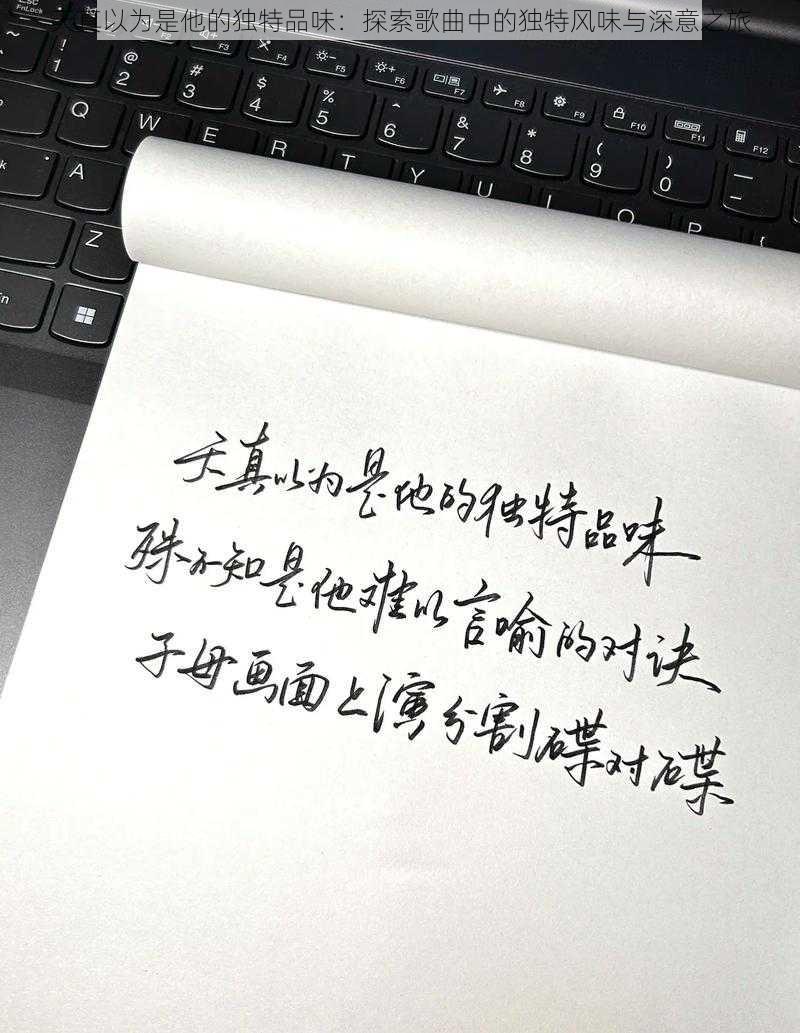 天真以为是他的独特品味：探索歌曲中的独特风味与深意之旅
FnLock F5 F6 F7 F8 F9 F10 F11 F12
@ # $ % ^ & * ( ) _
2 3 4 5 6 7 8 9 0 -
Q W E R T Y U I O P
A
Z
天真以为是他的独特品味
殊不知是他难以言喻的对诀
子母画面上演分割碟对碟